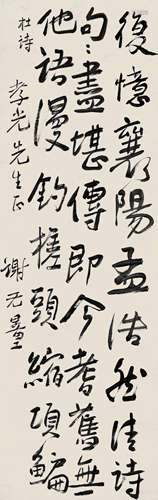 復憶襄陽孟浩然清詩
句〻盡堪傳即今耆舊無
他語漫釣槎頭縮項鯿
杜詩
孝光先生正
謝无量